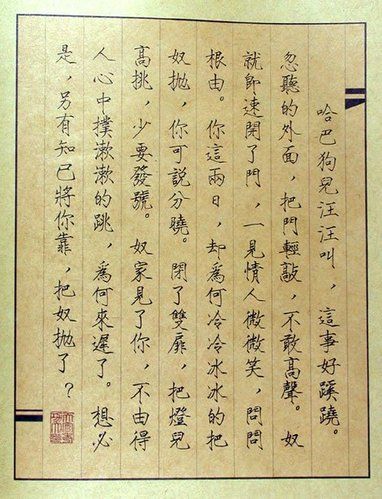 哈巴狗兒汪汪叫，這事好蹊蹺。
忽聽的外面，把門輕敲，不敢高聲。奴
就即速開了門，一見情人微微笑，問問
根由。你這兩日，却為何冷冷冰冰的把
奴拋，你可說分曉。閉了雙扉，把燈兒
高挑，少要發號。奴家見了你，不由得
人心中撲漱漱的跳，為何來遲了。想必
是，另有知己將你靠，把奴拋了？